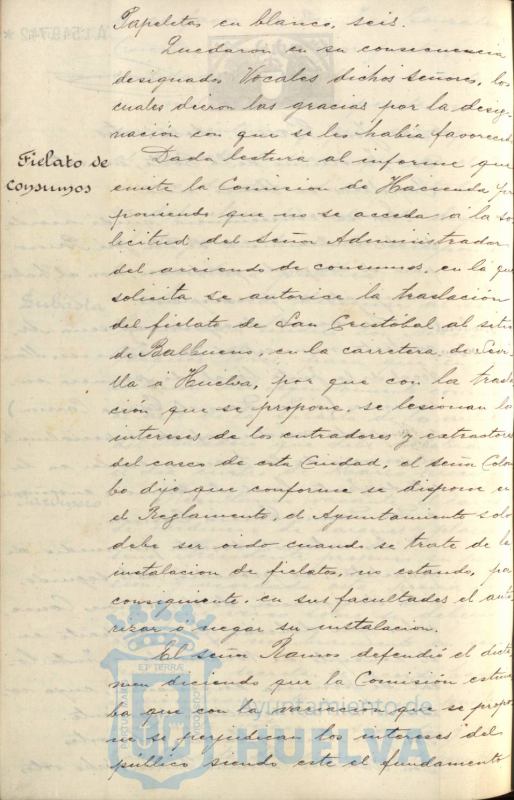 Papeletas en blanco, seis.
Quedaron en su consecuencia
designados Vocales dichos señores, los
cuales dieron las gracias por la desig-
nación con que se les había favorecido
Fielato de
consumos
Dada lectura al informe que
emite la Comision de Hacienda pro
poniendo que no se acceda á la so
licitud del Señor Administrador
del arriendo de consumos, en la que
solicita se autorice la traslación
del fielato de San Cristobal al sitio
de Balbueno, en la carretera de Sevi-
lla á Huelva, por que con la trasla
ción que se propone, se lesionan los
intereses de los entradores y extractores
del casco de esta Ciudad, el señor Colom
bo dijo que conforme se dispone en
el Reglamento, el Ayuntamiento solo
debe ser oido cuando se trate de la
instalacion de fielatos, no estando, por
consiguiente, en sus facultades el auto
rizar ó negar su instalacion.
El señor Ramos defendió el dicta
men diciendo que la Comisión estima
ba que con la variacion que se propo
ne se perjudican los intereses del
publico siendo este el fundamento
Ayuntamiento de
HUELVA